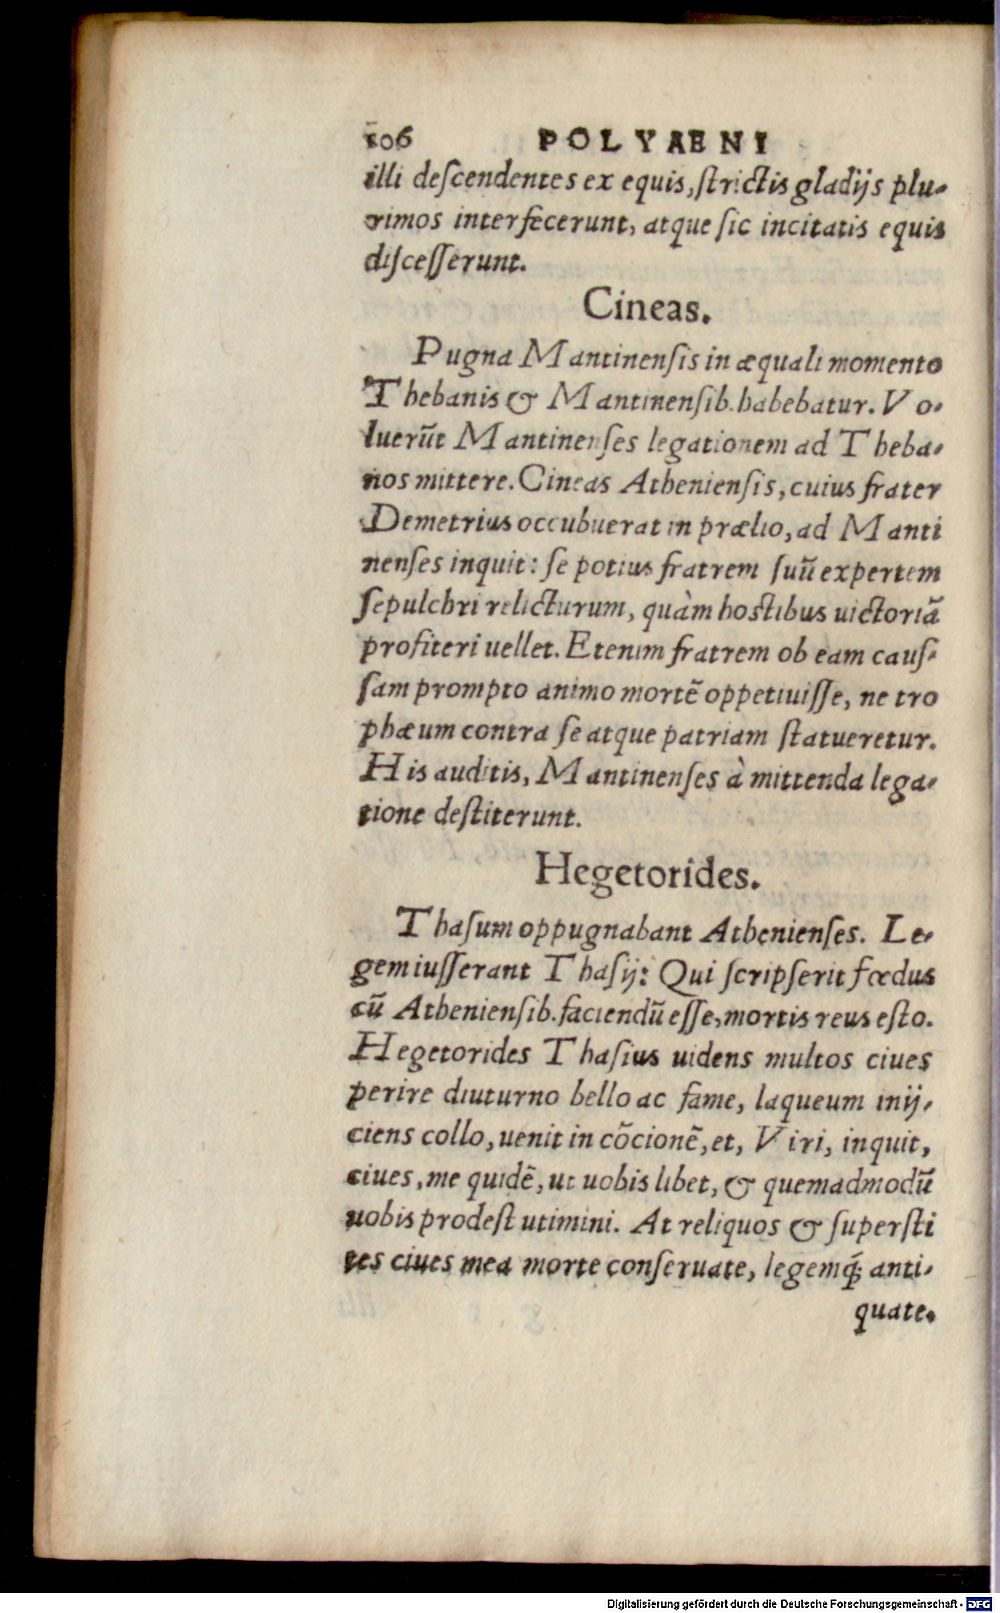 106 POLYAENI
illi deſcendentes ex equis, ſtrictis gladijs plu-
rimos interfecerunt, atque ſic incitatis equis
diſceſſerunt.
Cineas.
Pugna Mantinenſis in æquali momento
Thebanis & Mantinenſib. habebatur. Vo-
luerūt Mantinenſes legationem ad Theba-
nos mittere. Cineas Athenienſis, cuius frater
Demetrius occubuerat in prælio, ad Manti
nenſes inquit: ſe potius fratrem ſuū expertem
ſepulchri relicturum, quàm hoſtibus uictoriā
profiteri uellet. Etenim fratrem ob eam cauſ-
ſam prompto animo mortē oppetiuiſſe, ne tro
phæum contra ſe atque patriam ſtatueretur.
His auditis, Mantinenſes à mittenda lega-
tione deſtiterunt.
Hegetorides.
Thaſum oppugnabant Athenienſes. Le-
gem iuſſerant Thaſij: Qui ſcripſerit fœdus
cū Athenienſib. faciendū eſſe, mortis reus eſto.
Hegetorides Thaſius uidens multos ciues
perire diuturno bello ac fame, laqueum inij-
ciens collo, uenit in cōcionē, et, Viri, inquit,
ciues, me quidē, ut uobis libet, & quemadmodū
uobis prodeſt utimini. At reliquos & ſuperſti
tes ciues mea morte conſeruate, legemq́; anti-
quate.
Digitalisierung gefördert durch die Deutsche Forschungsgemeinschaft - DFG